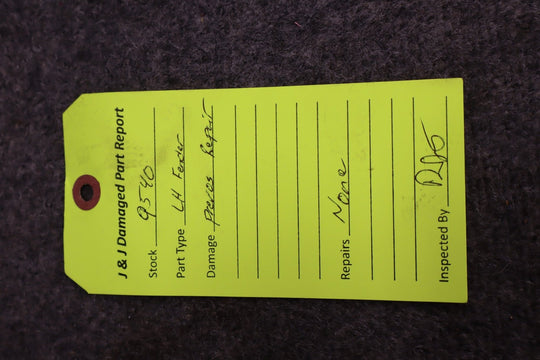 J & J Damaged Part Report
Stock 9540
Part Type LH Fender
Damage Prevos Repair
Repairs None
Inspected By